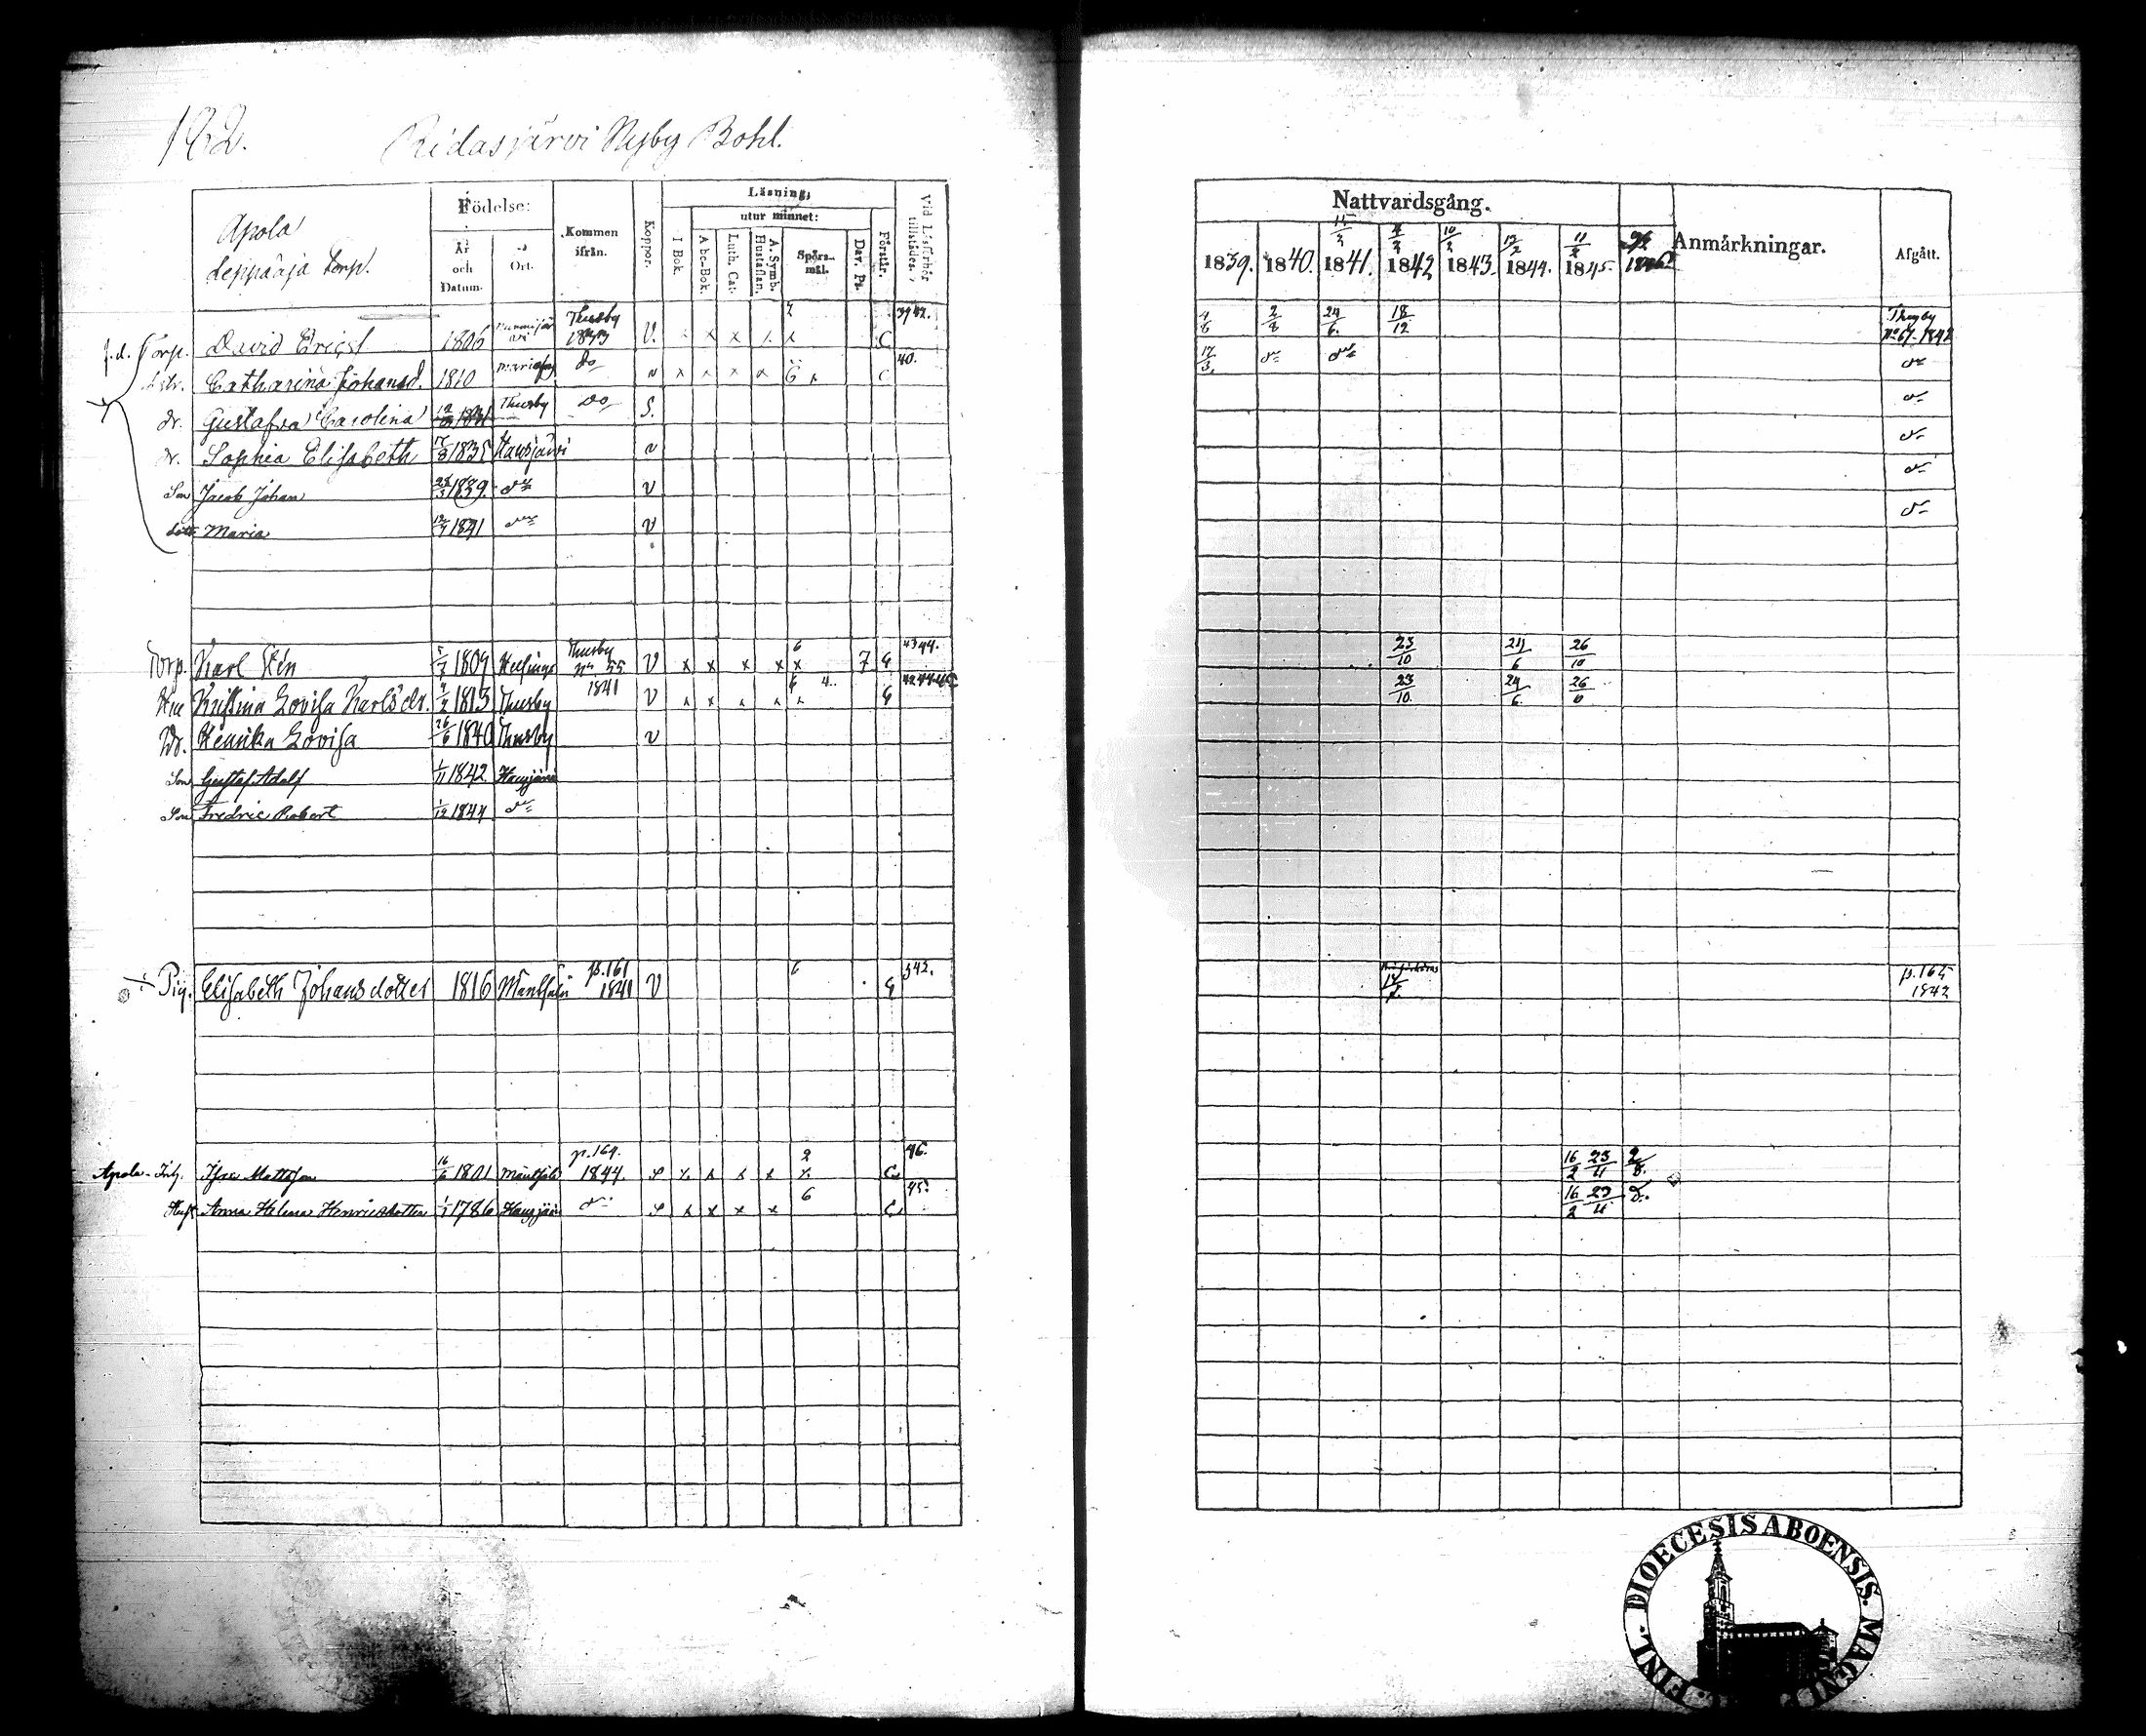 162. Ridasjärvi Nyby Bohl.
Apola
Leppäoja Torp.
Födelse:
År och Datum.
Ort.
Kommen ifrån.
Koppor.
Läsning,
I Bok.
utur minnet:
Abc-Bok.
Luth. Cat.
A. Symb. Hustaflan.
Spörs-mål.
Dav. Ps.
Förstår.
Vid Läsförhör tillstädes.
f.d. Torp. David Ericss. 1806 Thusby 1833 V. x x x x x C 3942.
Hstr. Catharina Johansd. 1810 do v x x x x 6 x C 40.
dr. Gustafva Carolina 1831 Thusby do S.
dr. Sophia Elisabeth 1835 Hausjärvi v
Son Jacob Johan 1839. do V
Maria 1841 do V
Torp. Karl Stén 5/7 1809 Helsinge Thusby No 55 1841 V x x x x x 6 7 G 4344.
Hu Kristina Lovisa Karlsdr. 1813 Thusby V x x x x x 6 4. G
Dr. Henrika Lovisa 26/6 1840 Thusby v
Son Gustaf Adolf 1/11 1842 Hausjärvi
Son Fredric Robert 1/12 1844 do
Pig. Elisabeth Johansdotter 1816 Mäntsälä p.161 1841 V 6 G 42.
Apola Inh. Isac Mattsson 16/6 1801 Mäntsälä p.164. 1844. x x x x 2 x C 46.
Hust. Anna Helena Henricsdotter 1/1 1786 Hausjärvi do x x x x 6 C 45.
Nattvardsgång.
1839. 1840. 1841. 1842 1843. 1844. 1845. 1846.
Anmärkningar.
Afgått.
2/8 24/6. 18/12 Thusby No 67. 1842
17/3. do do do
do
do
do
do
23/10 24/6 26/10
23/10. 24/6.
p. 165 1842
16/2 23/11 2/8.
16/2 23/11 do.
FINL. DIOECESIS ABOENSIS. MAGNI